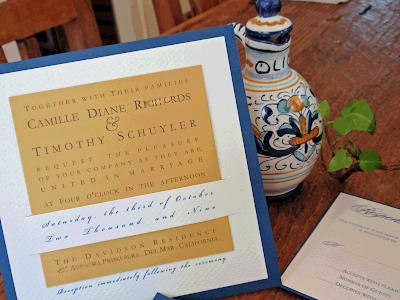 Together with Their families
Camille Diane Richards
&
Timothy Schuyler
request the pleasure
of your company as they are
united in marriage
at Four o'clock in the afternoon
Saturday, the third of October
Two Thousand and Nine
The Davidson Residence
Del Mar, California
Reception immediately following the ceremony
OLIO